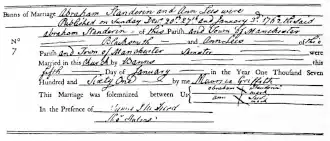 Banns of Marriage Abraham Standerin and Ann Lees were
Published on Sunday Decr 20th 27th and January 3d 1762 the said
No Abraham Standerin of this Parish and Town of Manchester
and Ann Lees of the
7 Parish and Town of Manchester were
Married in this Church by Banns
fifth Day of January in the Year One Thousand Seven
Hundred and Sixty One by me Maurice Griffith
This Marriage was solemnized between Us Abraham Standerin mark
Ann Lees mark
In the Presence of